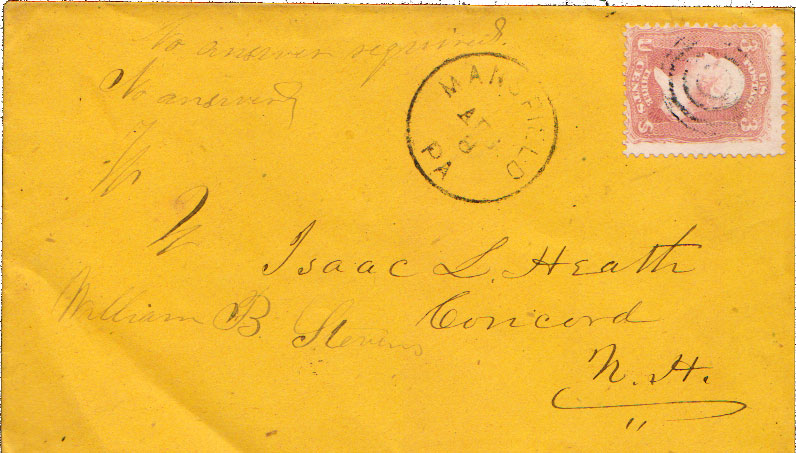 No answer required.
No answer
W
W
MANSFIELD
PA
U.S. POSTAGE
3 3
THREE CENTS
U S
Isaac L. Heath
William B. Stevens
Concord
N.H.